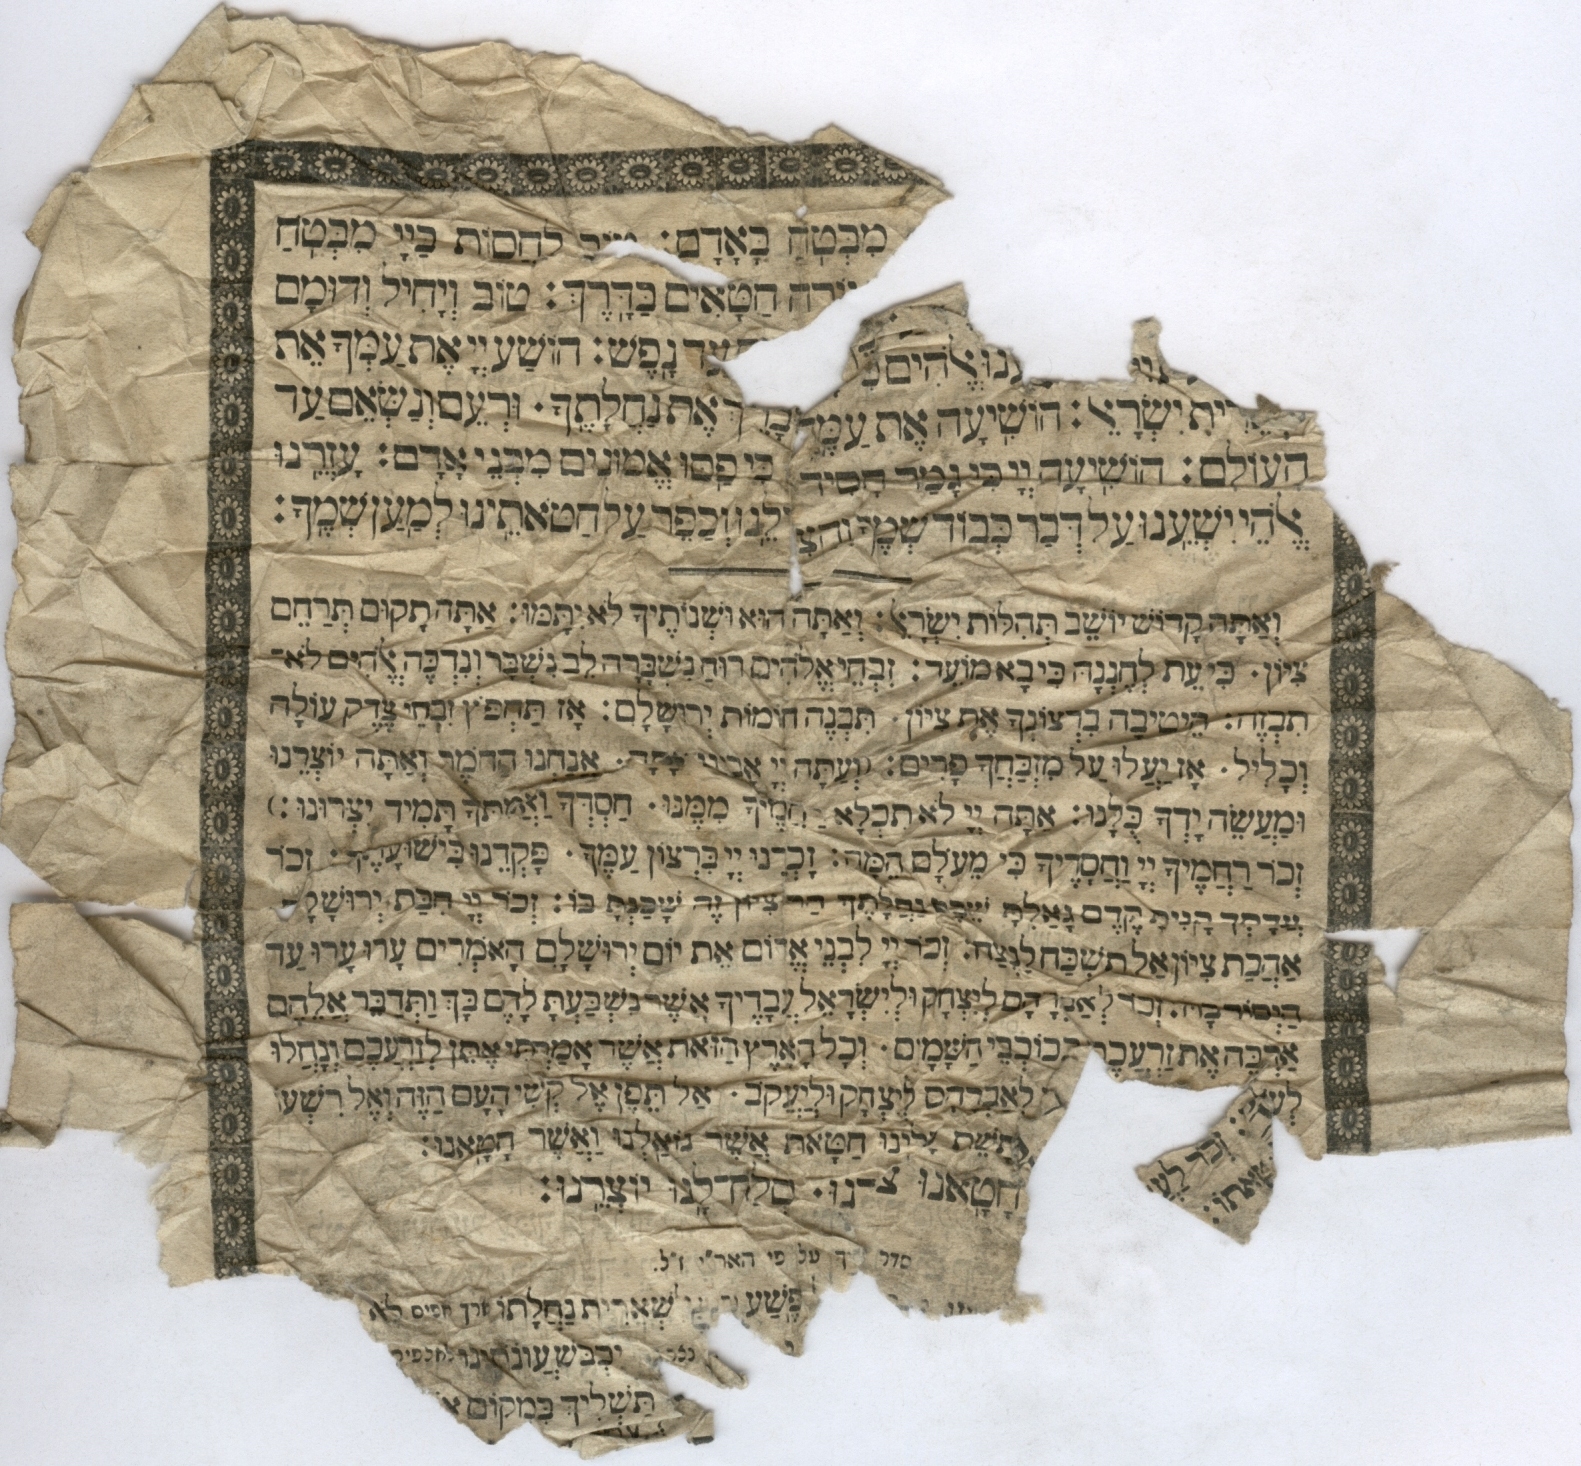 מִבְטַח בָּאָדָם: טוֹב לַחֲסוֹת בַּיְיָ מִבְּטֹחַ
חַטָּאִים בַּדָּרֶךְ: טוֹב וְיָחִיל וְדוּמָם
עַד נָפֶשׁ: הוֹשַׁע יְיָ אֶת עַמְּךָ אֵת
שְׁאֵרִית יִשְׂרָאֵל: הוֹשִׁיעָה אֶת עַמֶּךָ וּבָרֵךְ אֶת נַחֲלָתֶךָ. וּרְעֵם וְנַשְּׂאֵם עַד
הָעוֹלָם: הוֹשִׁיעָה יְיָ כִּי גָמַר חָסִיד כִּי פַסּוּ אֱמוּנִים מִבְּנֵי אָדָם: עָזְרֵנוּ
אֱלֹהֵי יִשְׁעֵנוּ עַל דְּבַר כְּבוֹד שְׁמֶךָ וְהַצִּילֵנוּ וְכַפֵּר עַל חַטֹּאתֵינוּ לְמַעַן שְׁמֶךָ:
וְאַתָּה קָדוֹשׁ יוֹשֵׁב תְּהִלּוֹת יִשְׂרָאֵל: וְאַתָּה הוּא וּשְׁנוֹתֶיךָ לֹא יִתָּמּוּ: אַתָּה תָקוּם תְּרַחֵם
צִיּוֹן. כִּי עֵת לְחֶנְנָהּ כִּי בָא מוֹעֵד: זִבְחֵי אֱלֹהִים רוּחַ נִשְׁבָּרָה לֵב נִשְׁבָּר וְנִדְכֶּה אֱלֹהִים לֹא־
תִבְזֶה: הֵיטִיבָה בִרְצוֹנְךָ אֶת צִיּוֹן. תִּבְנֶה חוֹמוֹת יְרוּשָׁלָםִ: אָז תַּחְפֹּץ זִבְחֵי צֶדֶק עוֹלָה
וְכָלִיל. אָז יַעֲלוּ עַל מִזְבַּחֲךָ פָרִים: (וְעַתָּה יְיָ אָבִינוּ אָתָּה. אֲנַחְנוּ הַחֹמֶר וְאַתָּה יוֹצְרֵנוּ
וּמַעֲשֵׂה יָדְךָ כֻּלָּנוּ: אַתָּה יְיָ לֹא תִכְלָא רַחֲמֶיךָ מִמֶּנּוּ. חַסְדְּךָ וַאֲמִתְּךָ תָּמִיד יִצְּרוּנוּ:)
זְכֹר רַחֲמֶיךָ יְיָ וַחֲסָדֶיךָ כִּי מֵעֹלָם הֵמָּה: זָכְרֵנוּ יְיָ בִּרְצוֹן עַמֶּךָ. פָּקְדֵנוּ בִּישׁוּעָתֶךָ: זְכֹר
עֲדָתְךָ קָנִיתָ קֶּדֶם גָּאַלְתָּ שֵׁבֶט נַחֲלָתֶךָ הַר צִיּוֹן זֶה שָׁכַנְתָּ בּוֹ: זְכֹר יְיָ חִבַּת יְרוּשָׁלָםִ
אַהֲבַת צִיּוֹן אַל תִּשְׁכַּח לָנֶצַח: זְכֹר יְיָ לִבְנֵי אֱדוֹם אֵת יוֹם יְרוּשָׁלָםִ הָאֹמְרִים עָרוּ עָרוּ עַד
הַיְסוֹד בָּהּ: זְכֹר לְאַבְרָהָם לְיִצְחָק וּלְיִשְׂרָאֵל עֲבָדֶיךָ אֲשֶׁר נִשְׁבַּעְתָּ לָהֶם בָּךְ וַתְּדַבֵּר אֲלֵהֶם
אַרְבֶּה אֶת זַרְעֲכֶם כְּכוֹכְבֵי הַשָּׁמָיִם. וְכָל הָאָרֶץ הַזֹּאת אֲשֶׁר אָמַרְתִּי אֶתֵּן לְזַרְעֲכֶם וְנָחֲלוּ
זְכֹר לְאַבְרָהָם לְיִצְחָק וּלְיַעֲקֹב. אַל תֵּפֶן אֶל קְשִׁי הָעָם הַזֶּה וְאֶל רִשְׁעוֹ
תָשֵׁת עָלֵינוּ חַטָּאת אֲשֶׁר נוֹאַלְנוּ וַאֲשֶׁר חָטָאנוּ:
חָטָאנוּ צוּרֵנוּ. סְלַח לָנוּ יוֹצְרֵנוּ:
סדר על פי האר״י ז״ל.
פֶּשַׁע לִשְׁאֵרִית נַחֲלָתוֹ ארך אפים לֹא
יִכְבֹּשׁ עֲוֹנֹתֵינוּ
תַּשְׁלִיךְ בִּמְקוֹם